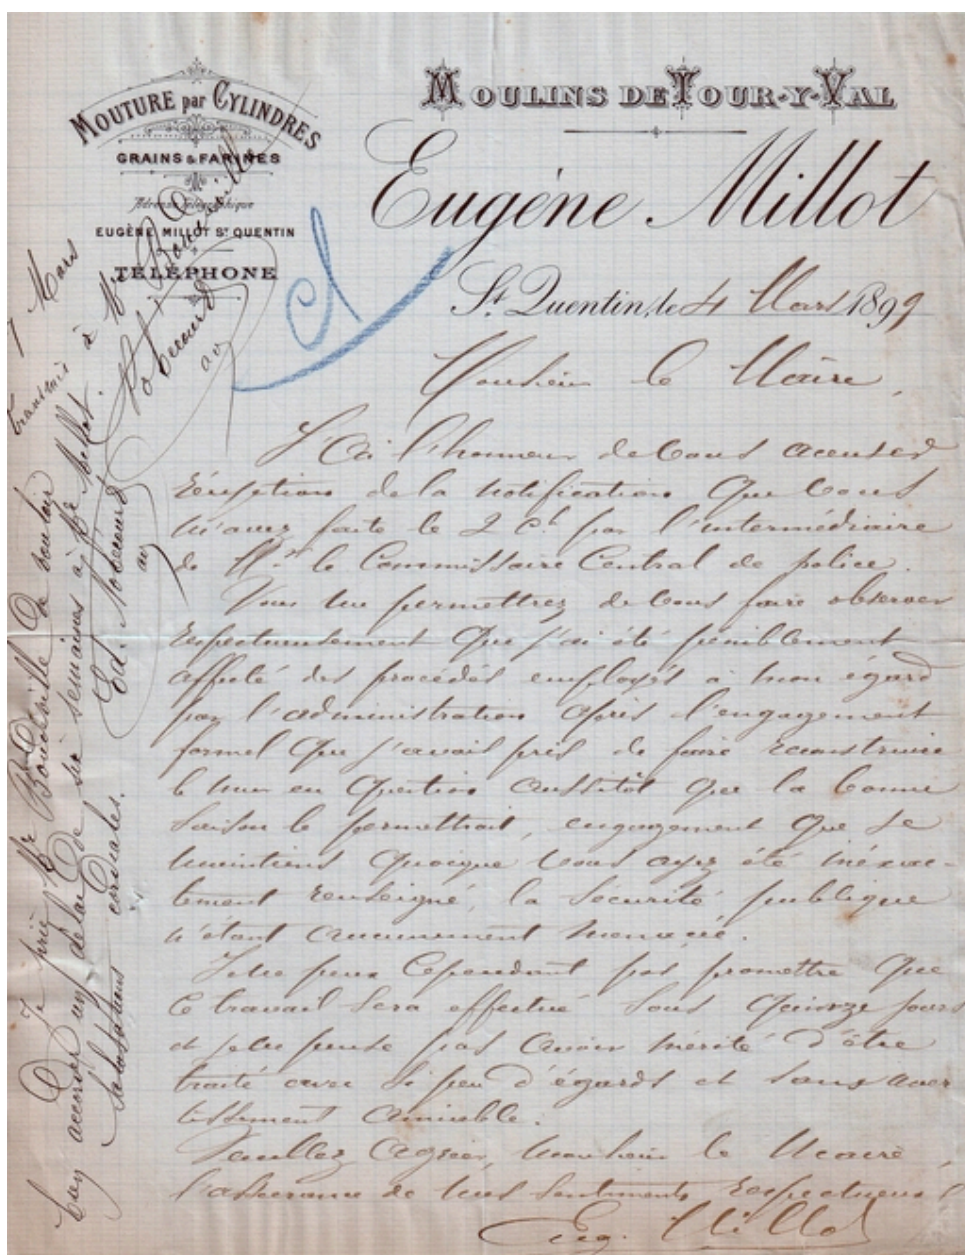 MOUTURE par CYLINDRES
GRAINS & FARINES
Adresse Télégraphique
EUGÈNE MILLOT St QUENTIN
TÉLÉPHONE
MOULINS DE TOUR-Y-VAL
Eugène Millot
St. Quentin, le 4 Mars 1899
Monsieur le Maire,
J'ai l'honneur de vous accuser
réception de la notification que vous
m'avez faite le 2 ct par l'intermédiaire
de Mr le Commissaire Central de police.
Vous me permettrez de vous faire observer
respectueusement que j'ai été péniblement
affecté des procédés employés à mon égard
par l'administration après l'engagement
formel que j'avais pris de faire reconstruire
le mur en question aussitôt que la bonne
saison le permettrait, engagement que je
maintiens quoique vous ayez été inéxac-
tement renseigné, la sécurité publique
n'étant aucunement menacée.
Je ne peux cependant pas promettre que
ce travail sera effectué sous quinze jours
et je ne pense pas avoir mérité d'être
traité avec si peu d'égards et sans aver
tissement amiable.
Veuillez agréer, Monsieur le Maire,
l'assurance de mes sentiments respectueux
Eug. Millot
7 Mars
transmis à Mr Boudeville
Je prie Mr Boudeville de vouloir
bien accorder un délai de six semaines à Mr Millot.
Salutations cordiales.
Ed.